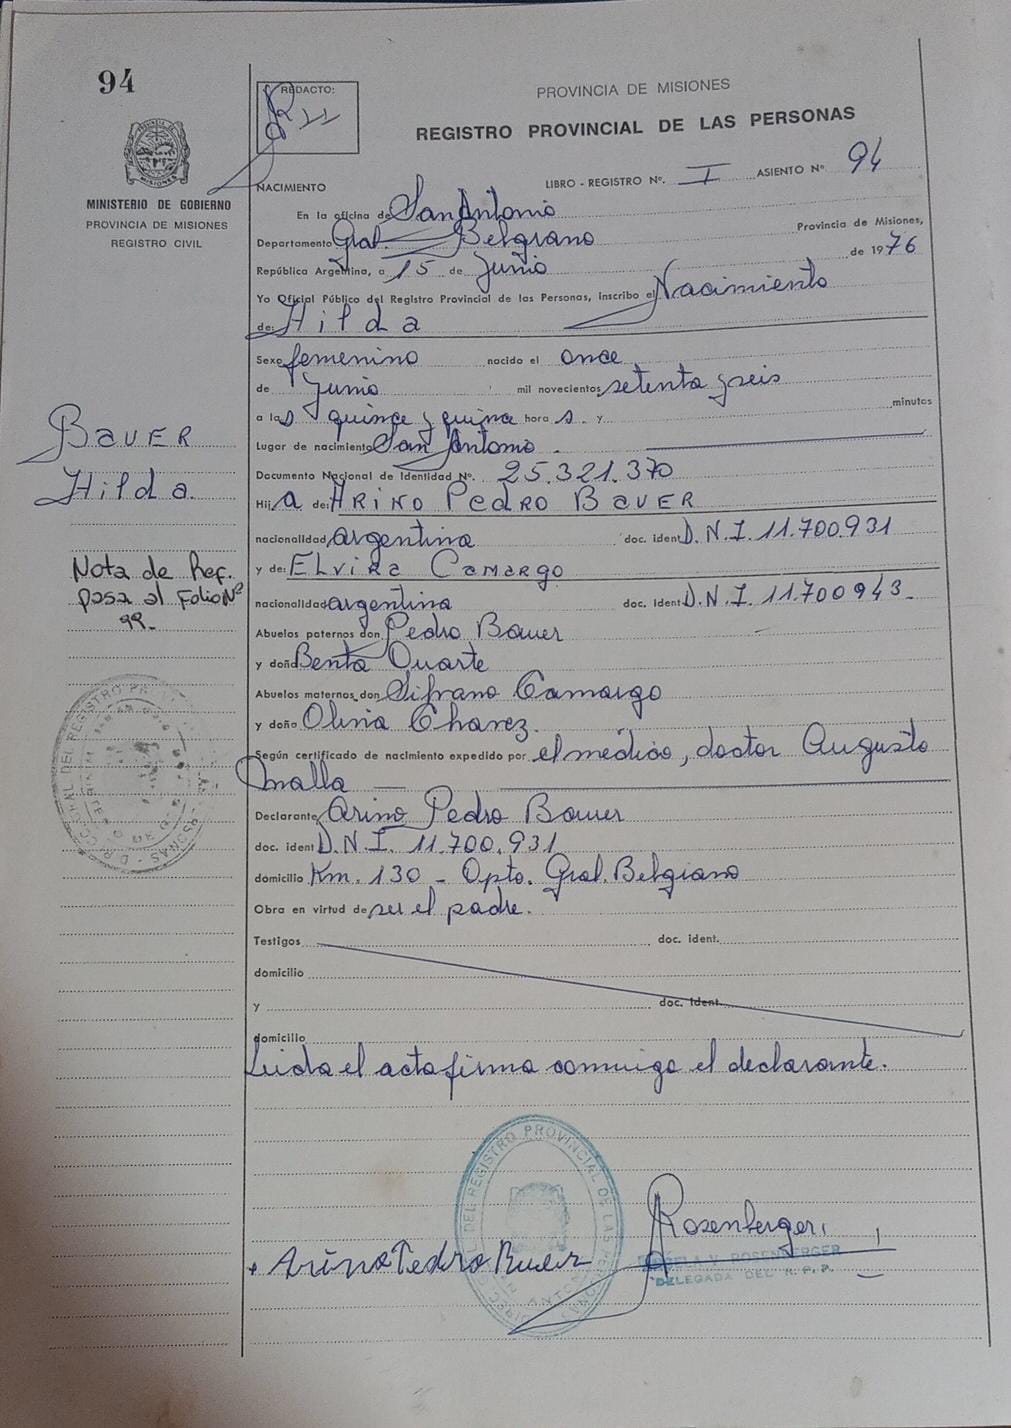 94
REDACTO:
PROVINCIA DE MISIONES
REGISTRO PROVINCIAL DE LAS PERSONAS
MISIONES
MINISTERIO DE GOBIERNO
PROVINCIA DE MISIONES
REGISTRO CIVIL
NACIMIENTO
LIBRO - REGISTRO Nº. I ASIENTO Nº 94
En la oficina de San Antonio
Departamento Gral. Belgrano Provincia de Misiones,
República Argentina, a 15 de Junio de 1976
Yo Oficial Público del Registro Provincial de las Personas, inscribo el Nacimiento
de: Hilda
Sexo femenino nacido el once
de Junio mil novecientos setenta y seis
a las quince y quince horas. y minutos
Lugar de nacimiento San Antonio.
Documento Nacional de Identidad Nº. 25.321.370
Hija de: ARINO PEDRO BAUER
nacionalidad argentina doc. ident D.N.I. 11.700.931
y de: ELVIRA Camargo
nacionalidad argentina doc. ident D.N.I. 11.700943.
Abuelos paternos don Pedro Bauer
y doña Benta Duarte
Abuelos maternos don Sifrano Camargo
y doña Olina Chavez.
Según certificado de nacimiento expedido por el médico, doctor Augusto
Declarante Arino Pedro Bauer
doc. ident D.N.I. 11.700.931
domicilio Km. 130 - Dpto. Gral. Belgrano
Obra en virtud de ser el padre.
Testigos doc. ident.
domicilio
y doc. ident.
domicilio
Leida el acta firma conmigo el declarante.
BAUER
Hilda.
Nota de Ref.
pasa al Folio Nº
99.
DEL REGISTRO PROVINCIAL DE LAS
Arino Pedro Bauer
Rosenberger
V. ROSENBERGER
DELEGADA DEL R. P. P.